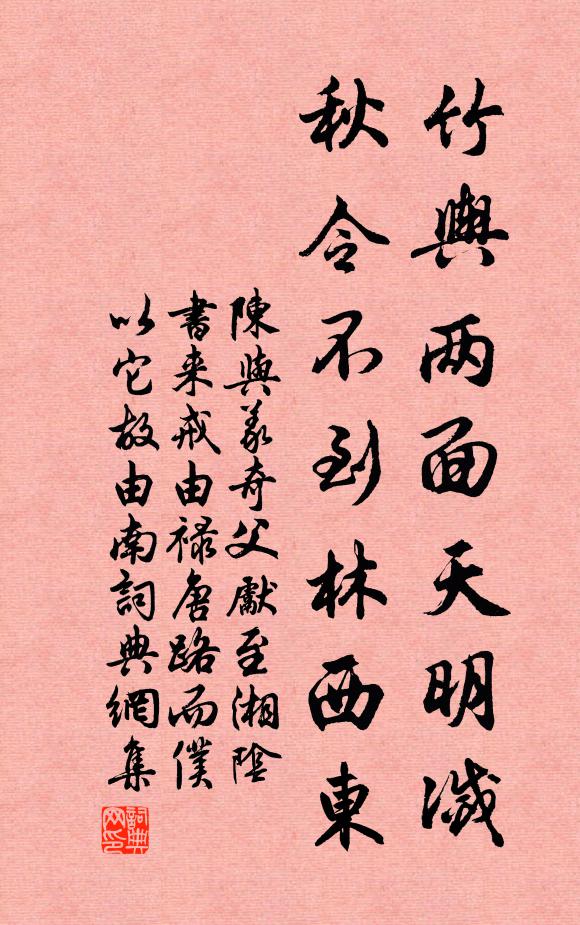 竹輿两面天明滅
秋令不到林西東
陳與義奇父獻至湘陰
書来戒由禄唐路而僕
以它故由南詞典網集
詞典网印